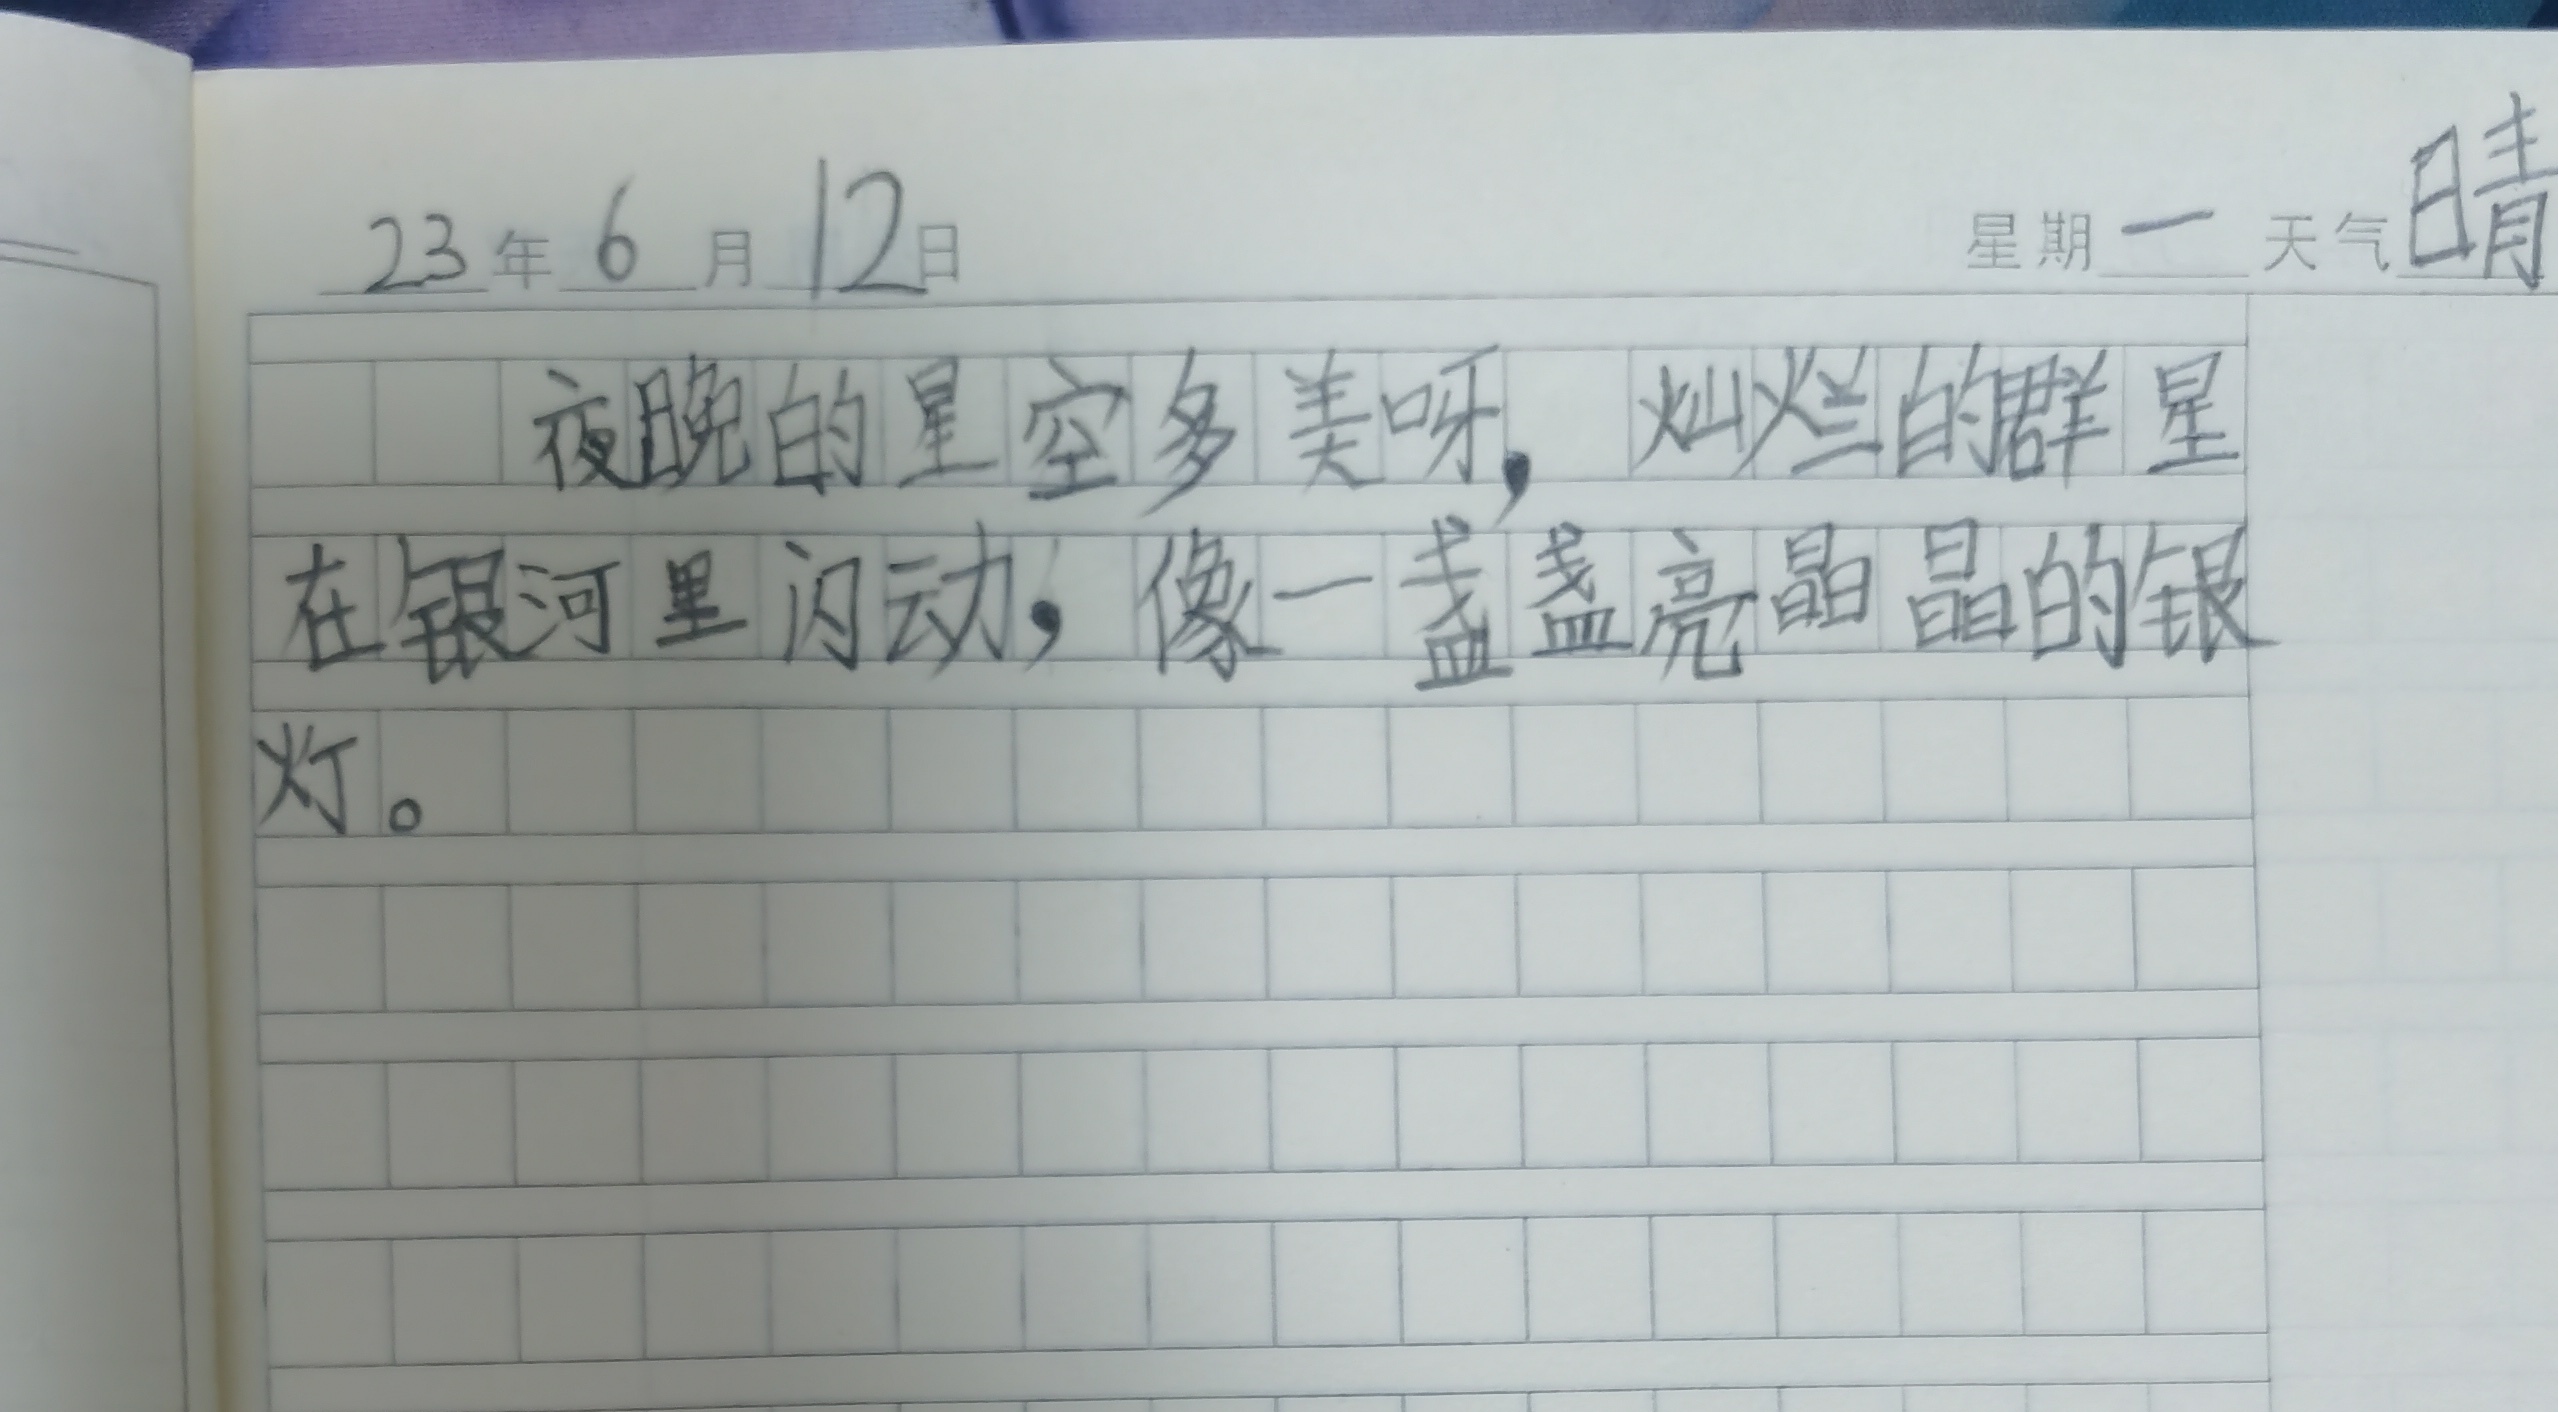 23年6月12日 星期一 天气晴
夜晚的星空多美呀，灿烂的群星
在银河里闪动，像一盏盏亮晶晶的银
灯。